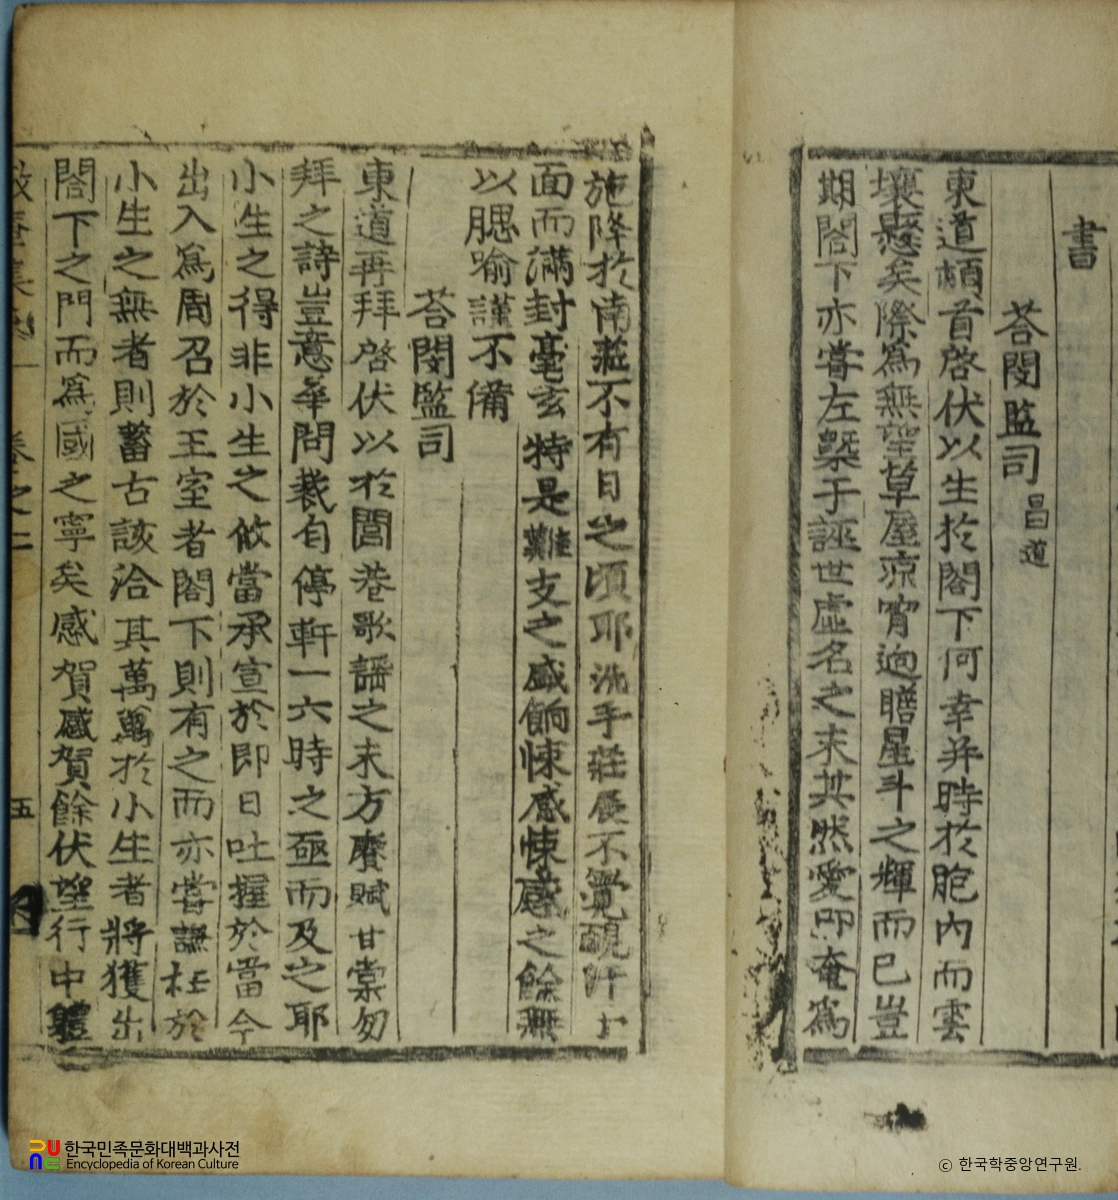 書
荅閔監司 昌道
東道頓首啓伏以生於閤下何幸并時於胞內而雲
壤懸矣際爲無望草屋凉宵逈瞻星斗之輝而已豈
期閤下亦嘗左槩于誣世虛名之末其然愛卽奄爲
施降於南莊不有日之頃耶洗手莊展不覺
面而滿封毫玄特是難支之感餉悚感悚感之餘無
以腮喻謹不備
荅閔監司
東道再拜啓伏以於閭巷歌謠之末方賡賦甘棠勿
拜之詩豈意華問裁自停軒一六時之亟而及之耶
小生之得非小生之攸當承宣於卽日吐握於當今
出入爲周召於王室者閤下則有之而亦嘗謙枉於
小生之無者則蓄古該洽其萬萬於小生者將獲出
閤下之門而爲國之寧矣感賀感賀餘伏望行中軆
集卷之二
五
한국민족문화대백과사전
Encyclopedia of Korean Culture
ⓒ 한국학중앙연구원.